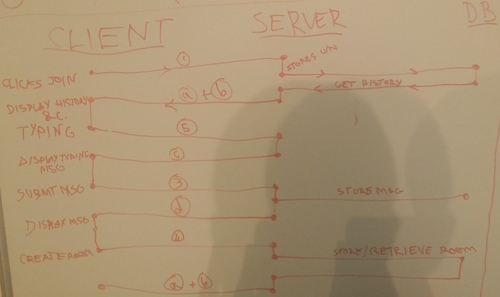 CLIENT SERVER DB
1
STORES U/N
CLICKS JOIN
a + b GET HISTORY
DISPLAY HISTORY
& C.
TYPING 5
DISPLAY TYPING c
MSG
SUBMIT MSG 3
STORE MSG
DISPLAY MSG d
CREATE ROOM STORE/RETRIEVE ROOM
a + b